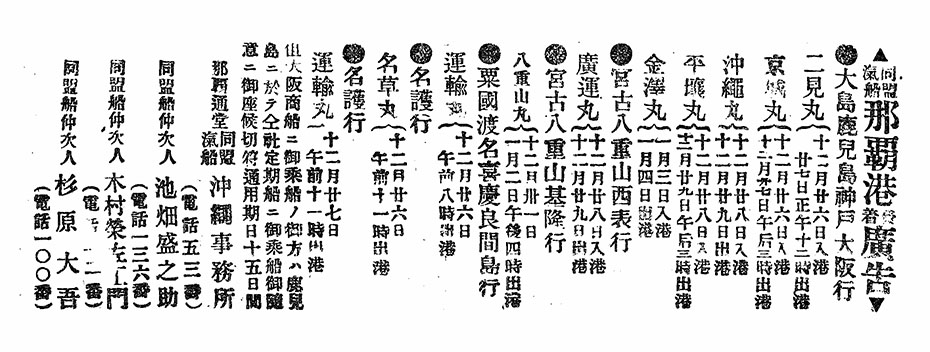 ▲同盟汽船那覇港發着廣告▼
●大島鹿兒島神戸大阪行
二見丸 十二月廿六日入港 廿七日正午十二時出港
京城丸 十二月廿七日入港 十二月廿九日午后三時出港
沖繩丸 十二月廿八日入港 十二月廿九日出港
平壤丸 十二月廿八日入港 十二月廿九日午后三時出港
金澤丸 一月三日入港 一月四日出港
●宮古八重山西表行
廣運丸 十二月廿八日入港 十二月廿九日出港
●宮古八重山基隆行
八重山丸 十二月卅一日 一月二日午後四時出港
●粟國渡名喜慶良間島行
運輸丸 十二月廿六日 午前八時出港
●名護行
名草丸 十二月廿六日 午前十一時出港
●名護行
運輸丸 十二月廿七日 午前十一時出港
但大阪商船ニ御乘船ノ御方ハ鹿兒
島ニ於テ仝社定期船ニ御乘船御隨
意ニ御座候切符通用期日十五日間
那覇通堂 同盟汽船 沖繩事務所
(電話五三番)
同盟船仲次人 池畑盛之助
(電話一三六番)
同盟船仲次人 木村榮左エ門
(電 二一番)
同盟船仲次人 杉原大吾
(電話一〇〇番)